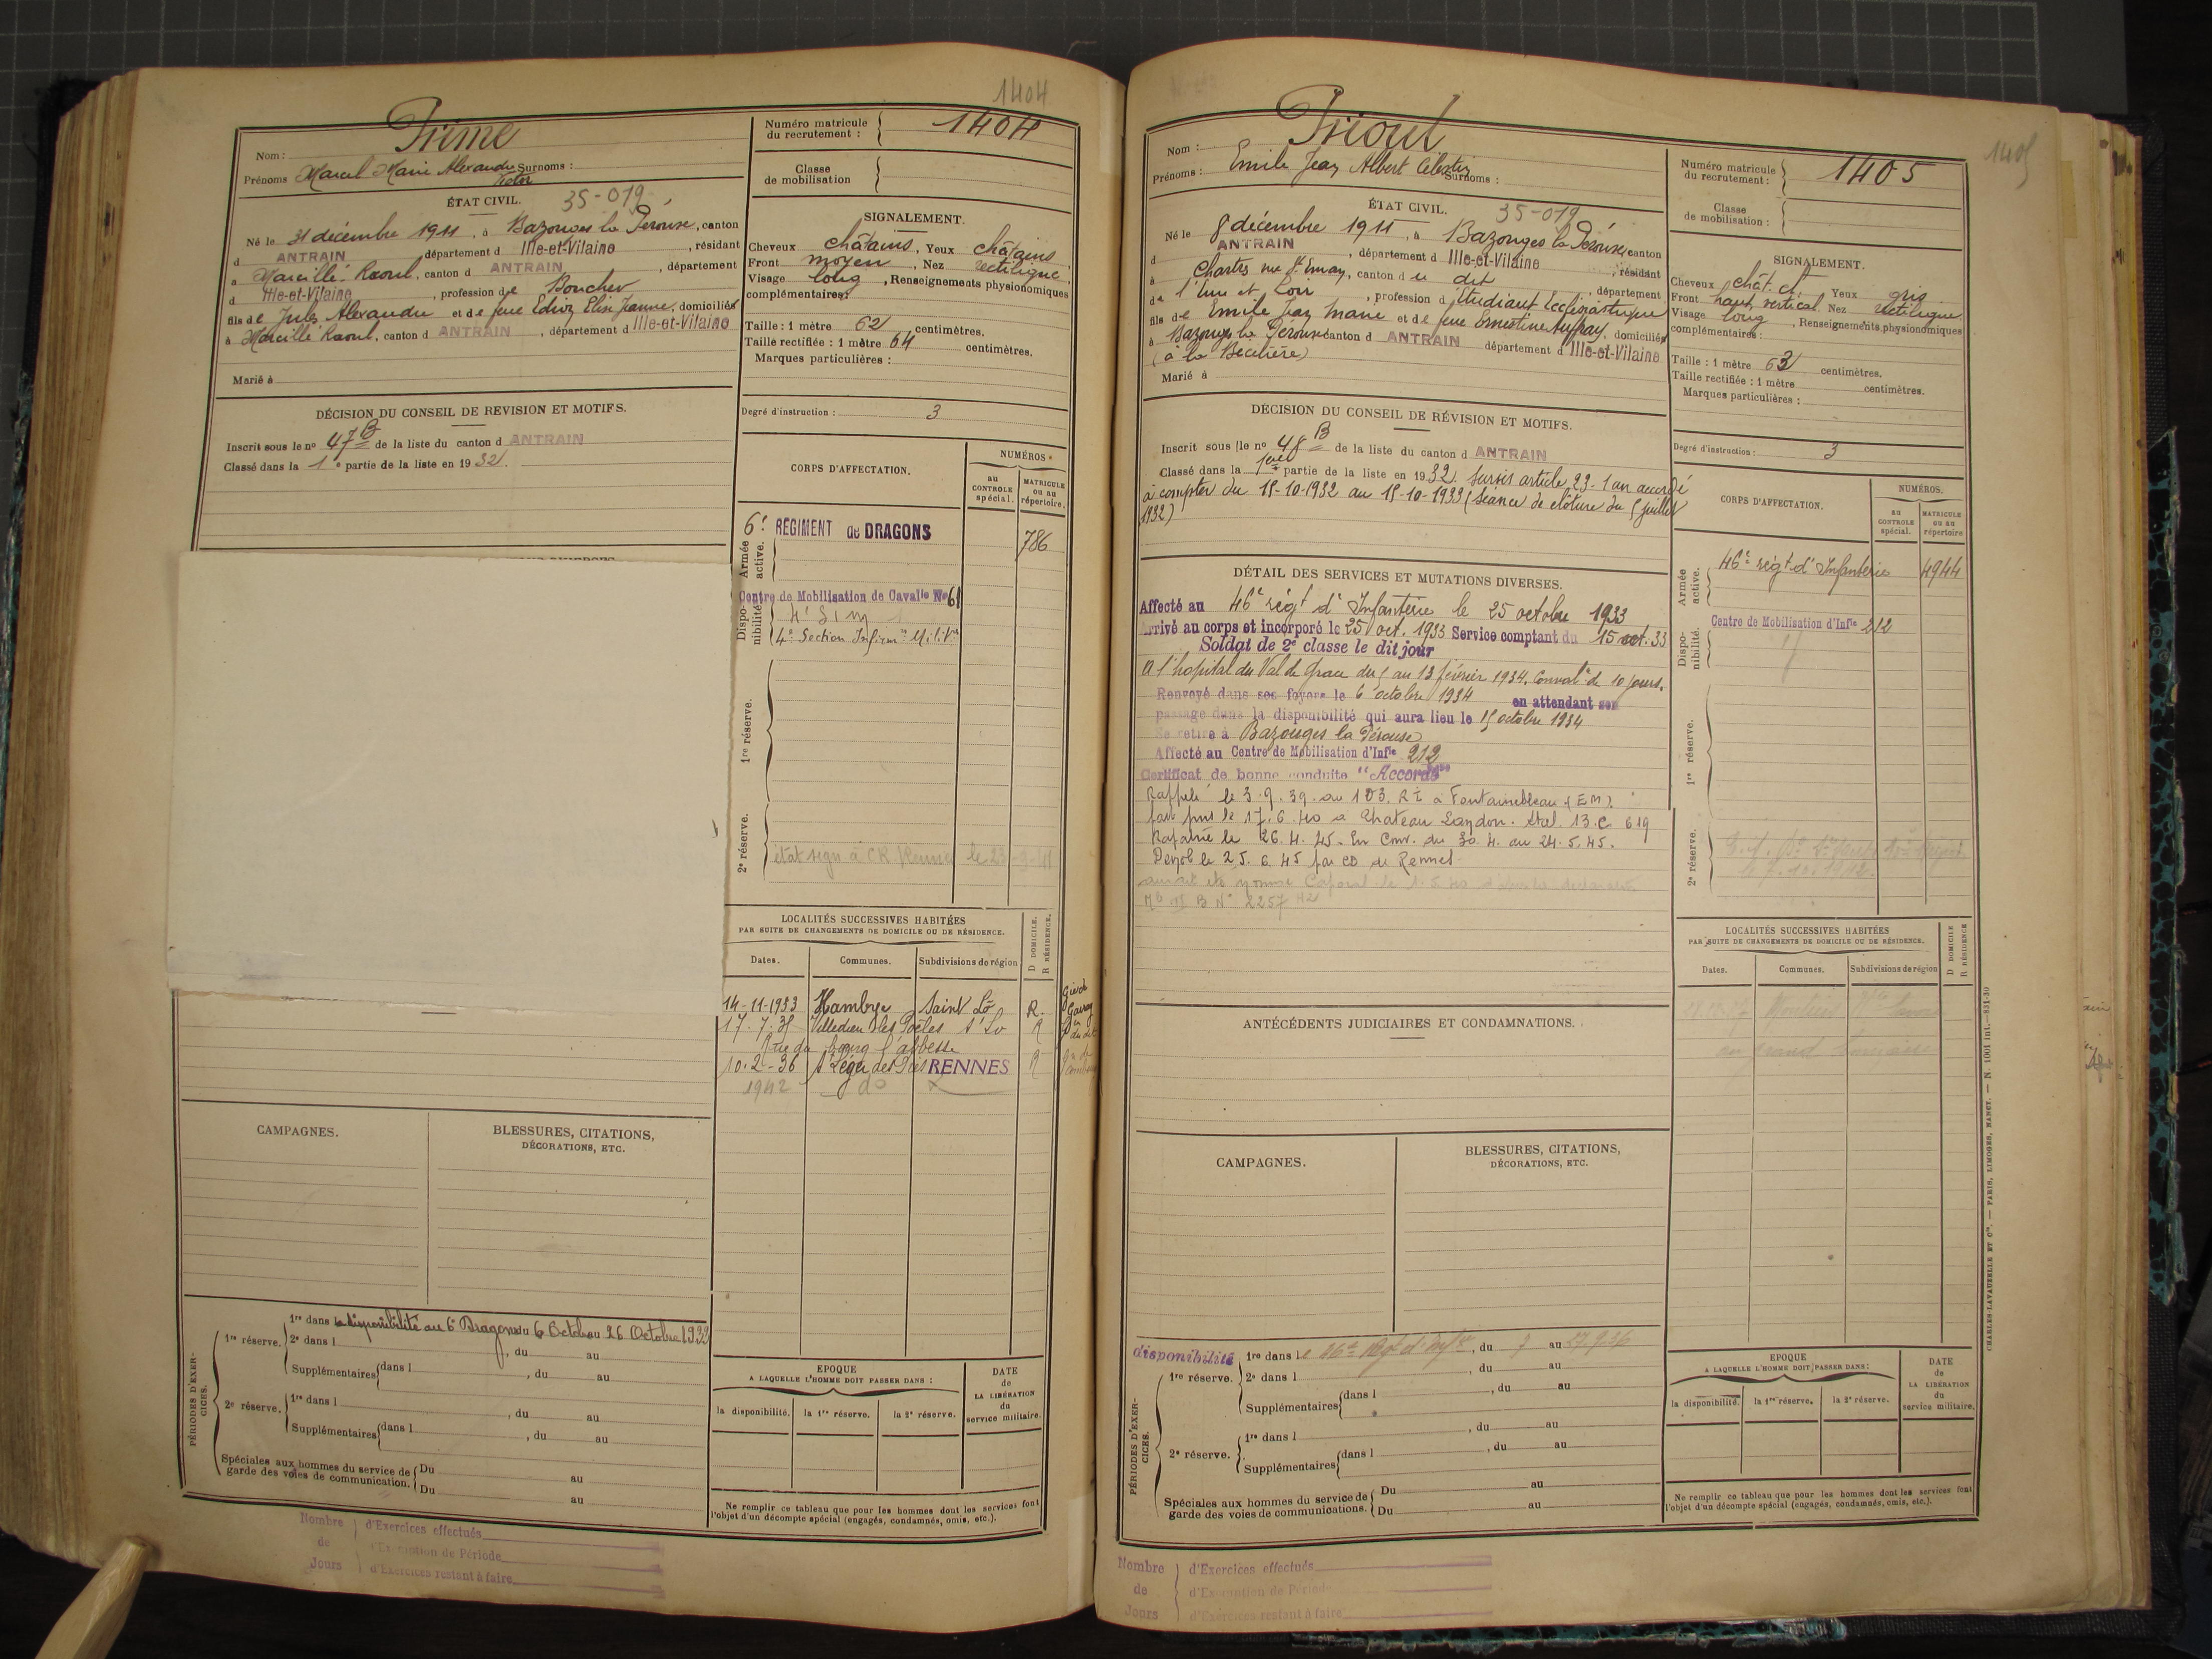 1404
Nom : Prime
Prénoms Marcel Marie Alexandre Surnoms :
Victor
ÉTAT CIVIL. 35-019
Né le 31 décembre 1911, à Bazouges la Pérouse, canton
d ANTRAIN département d Ille-et-Vilaine, résidant
à Marcillé-Raoul, canton d ANTRAIN, département
d Ille-et-Vilaine, profession de Boucher
fils de Jules Alexandre et de feue Elise Jeanne, domiciliés
à Marcillé Raoul, canton d ANTRAIN, département d Ille-et-Vilaine
Marié à
DÉCISION DU CONSEIL DE REVISION ET MOTIFS.
Inscrit sous le no 47 B de la liste du canton d ANTRAIN
Classé dans la 1e partie de la liste en 1932.
Numéro matricule du recrutement : 1404
Classe de mobilisation
SIGNALEMENT.
Cheveux châtains, Yeux châtains
Front moyen, Nez rectiligne
Visage long, Renseignements physionomiques
complémentaires :
Taille : 1 mètre 62 centimètres.
Taille rectifiée : 1 mètre 64 centimètres.
Marques particulières :
Degré d'instruction : 3
CORPS D'AFFECTATION.
NUMÉROS
au CONTROLE spécial.
MATRICULE ou au répertoire.
Armée active.
6e REGIMENT de DRAGONS 786
Disponibilité
Centre de Mobilisation de Cavalie No 61
4e Section Infirm. Milit.
1re réserve.
2e réserve.
LOCALITÉS SUCCESSIVES HABITÉES
PAR SUITE DE CHANGEMENTS DE DOMICILE OU DE RÉSIDENCE.
Dates. Communes. Subdivisions de région D DOMICILE. R RÉSIDENCE.
14-11-1933 Hambye Saint Lô R.
17.7.35 Villedieu les Poëles St Lo R
Rue du bourg l'abbesse
10-2-36 St Léger des Prés RENNES R
1942 do
CAMPAGNES.
BLESSURES, CITATIONS,
DÉCORATIONS, ETC.
PÉRIODES D'EXERCICES.
1re réserve. 1re dans la disponibilité au 6e Dragons du 6 Octob au 26 Octobre 1933
2e dans l , du au
Supplémentaires dans l , du au
2e réserve. 1re dans l , du au
Supplémentaires dans l , du au
Spéciales aux hommes du service de
garde des voies de communication. Du au
Du au
EPOQUE
A LAQUELLE L'HOMME DOIT PASSER DANS :
la disponibilité. la 1re réserve. la 2e réserve.
DATE de LA LIBÉRATION du service militaire.
Ne remplir ce tableau que pour les hommes dont les services font
l'objet d'un décompte spécial (engagés, condamnés, omis, etc.).
Nombre de Jours
d'Exercices effectués
d'Exemption de Période
d'Exercices restant à faire
1405
Nom : Prioul
Prénoms : Emile Jean Albert Célestin Surnoms :
ÉTAT CIVIL. 35-019
Né le 8 décembre 1911, à Bazouges la Pérouse, canton
d ANTRAIN, département d Ille-et-Vilaine, résidant
à Chartres rue St Eman, canton d u dit, département
de l'Eure et Loir, profession d'étudiant Ecclésiastique
fils de Emile Jean Marie et de feue Ernestine Auffray, domiciliés
à Bazouges la Pérouse canton d ANTRAIN département d Ille-et-Vilaine
Marié à
DÉCISION DU CONSEIL DE RÉVISION ET MOTIFS.
Inscrit sous le no 48 B de la liste du canton d ANTRAIN
Classé dans la 1ère partie de la liste en 1932. Sursis article 23-1 an accordé
à compter du 15-10-1932 au 15-10-1933 (Séance de clôture du 5 juillet
1932)
DÉTAIL DES SERVICES ET MUTATIONS DIVERSES.
Affecté au 46e régt d'Infanterie le 25 octobre 1933
Arrivé au corps et incorporé le 25 oct. 1933 Service comptant du 15 oct. 33
Soldat de 2e classe le dit jour
A l'hopital du Val de Grace du 5 au 13 février 1934. Conval. de 10 jours.
Renvoyé dans ses foyers le 6 octobre 1934 en attendant son
passage dans la disponibilité qui aura lieu le 15 octobre 1934
Se retire à Bazouges la Pérouse
Affecté au Centre de Mobilisation d'Infie 212
Certificat de bonne conduite "Accordé"
Rappelé le 3.9.39. au 103. RI à Fontainebleau (EM).
fait pris le 17.6.40 à Chateau Landon. Stal. 13.C 619
Rapatrié le 26.4.45. En Conv. du 30.4. au 24.5.45.
Démob le 25.6.45 par CD de Rennes
Numéro matricule du recrutement : 1405
Classe de mobilisation :
SIGNALEMENT.
Cheveux chât. cl. Yeux gris
Front haut vertical Nez rectiligne
Visage long, Renseignements physionomiques
complémentaires :
Taille : 1 mètre 63 centimètres.
Taille rectifiée : 1 mètre centimètres.
Marques particulières :
Degré d'instruction : 3
CORPS D'AFFECTATION.
NUMÉROS.
au CONTROLE spécial.
MATRICULE ou au répertoire
Armée active.
46e régt d'Infanterie 4944
Disponibilité.
Centre de Mobilisation d'Infie 212
1re réserve.
2e réserve.
LOCALITÉS SUCCESSIVES HABITÉES
PAR SUITE DE CHANGEMENTS DE DOMICILE OU DE RÉSIDENCE.
Dates. Communes. Subdivisions de région D DOMICILE R RÉSIDENCE
ANTÉCÉDENTS JUDICIAIRES ET CONDAMNATIONS.
CAMPAGNES.
BLESSURES, CITATIONS,
DÉCORATIONS, ETC.
PÉRIODES D'EXERCICES.
disponibilité 1re dans le 46e Régt d'Infie, du 7 au 27.9.36
1re réserve. 2e dans l , du au
Supplémentaires dans l , du au
2e réserve. 1re dans l , du au
Supplémentaires dans l , du au
Spéciales aux hommes du service de
garde des voies de communications. Du au
Du au
EPOQUE
A LAQUELLE L'HOMME DOIT PASSER DANS :
la disponibilité. la 1re réserve. la 2e réserve.
DATE de LA LIBÉRATION du service militaire.
Ne remplir ce tableau que pour les hommes dont les services font
l'objet d'un décompte spécial (engagés, condamnés, omis, etc.).
Nombre de Jours
d'Exercices effectués
d'Exemption de Période
d'Exercices restant à faire
CHARLES-LAVAUZELLE ET Cie. — PARIS, LIMOGES, NANCY. — N. 1001 int.—831-30